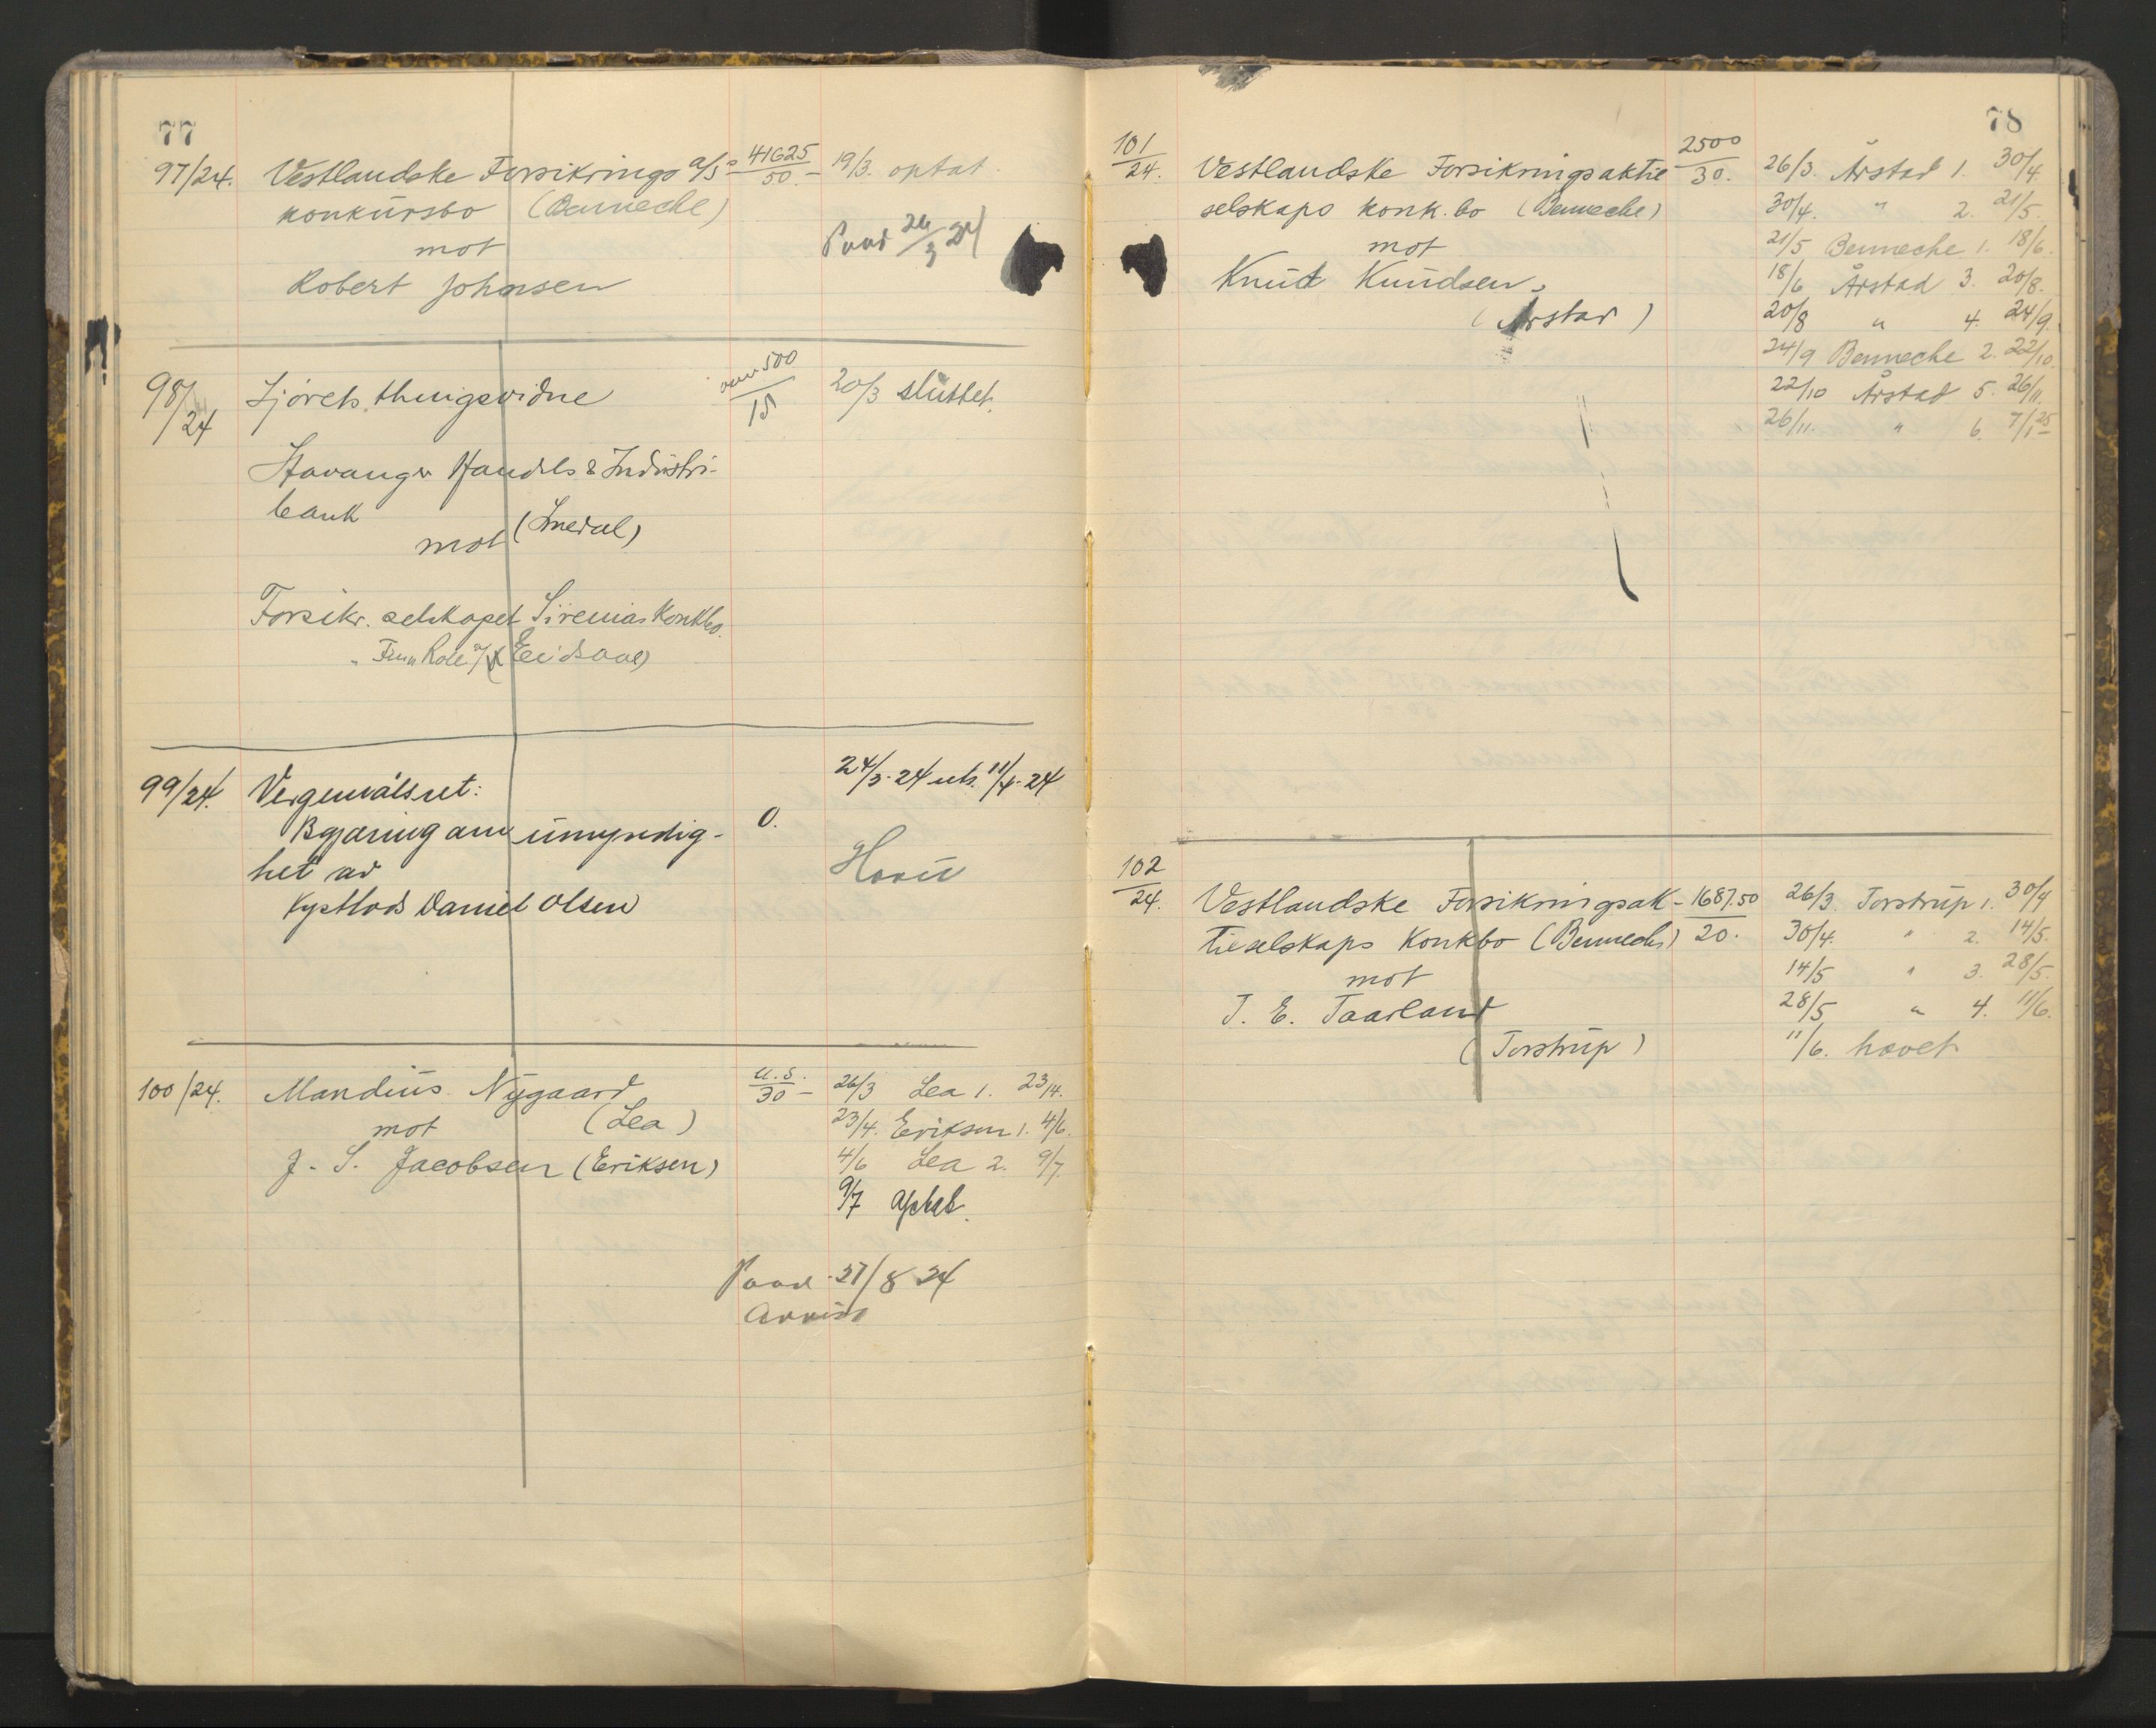 77
97/24. Vestlandske Forsikrings A/S 41625/50.- 19/3. optat.
konkursbo (Benneche)
mot
Paad 26/3 24
Robert Johnsen
98/24 Sjørets thingsvidne over 500/15 20/3 sluttet.
Stavanger Handels & Industri-
bank
mot (Smedal)
Forsikr. selskapet Sirenias Konkbo.
99/24. Vergemålsret: 24/3-24 uts. 11/4-24
Begjæring om umyndig- 0.
het av
Kystlods Daniel Olsen
Hovet
100/24. Mandius Nygaard u.s./30- 26/3 Lea 1. 23/4.
mot (Lea) 23/4. Eriksen 1. 4/6.
J. S. Jacobsen (Eriksen) 4/6 Lea 2. 9/7.
9/7 optat.
Paad 27/8 24
Avvist
78
101/24. Vestlandske Forsikringsaktie 2500/30. 26/3. Årstad 1. 30/4.
selskaps konk.bo (Benneche) 30/4. " 2. 21/5.
mot 21/5 Benneche 1. 18/6.
Knut Knudsen. 18/6 Årstad 3. 20/8.
(Årstad) 20/8 " 4. 24/9.
24/9 Benneche 2. 22/10
22/10 Årstad 5. 26/11.
26/11. " 6. 7/1 25
102/24. Vestlandske Forsikringsak- 1687.50/20. 26/3. Torstrup 1. 30/4
tieselskaps Konkbo (Benneche) 30/4. " 2. 14/5.
mot 14/5 " 3. 28/5.
T. E. Taarland 28/5 " 4. 11/6.
(Torstrup) 11/6. hævet